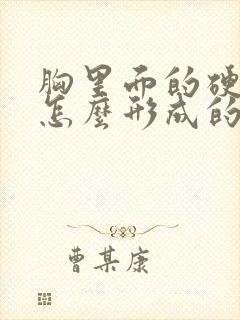 胸里面的硬
怎麼形成的
曹某康